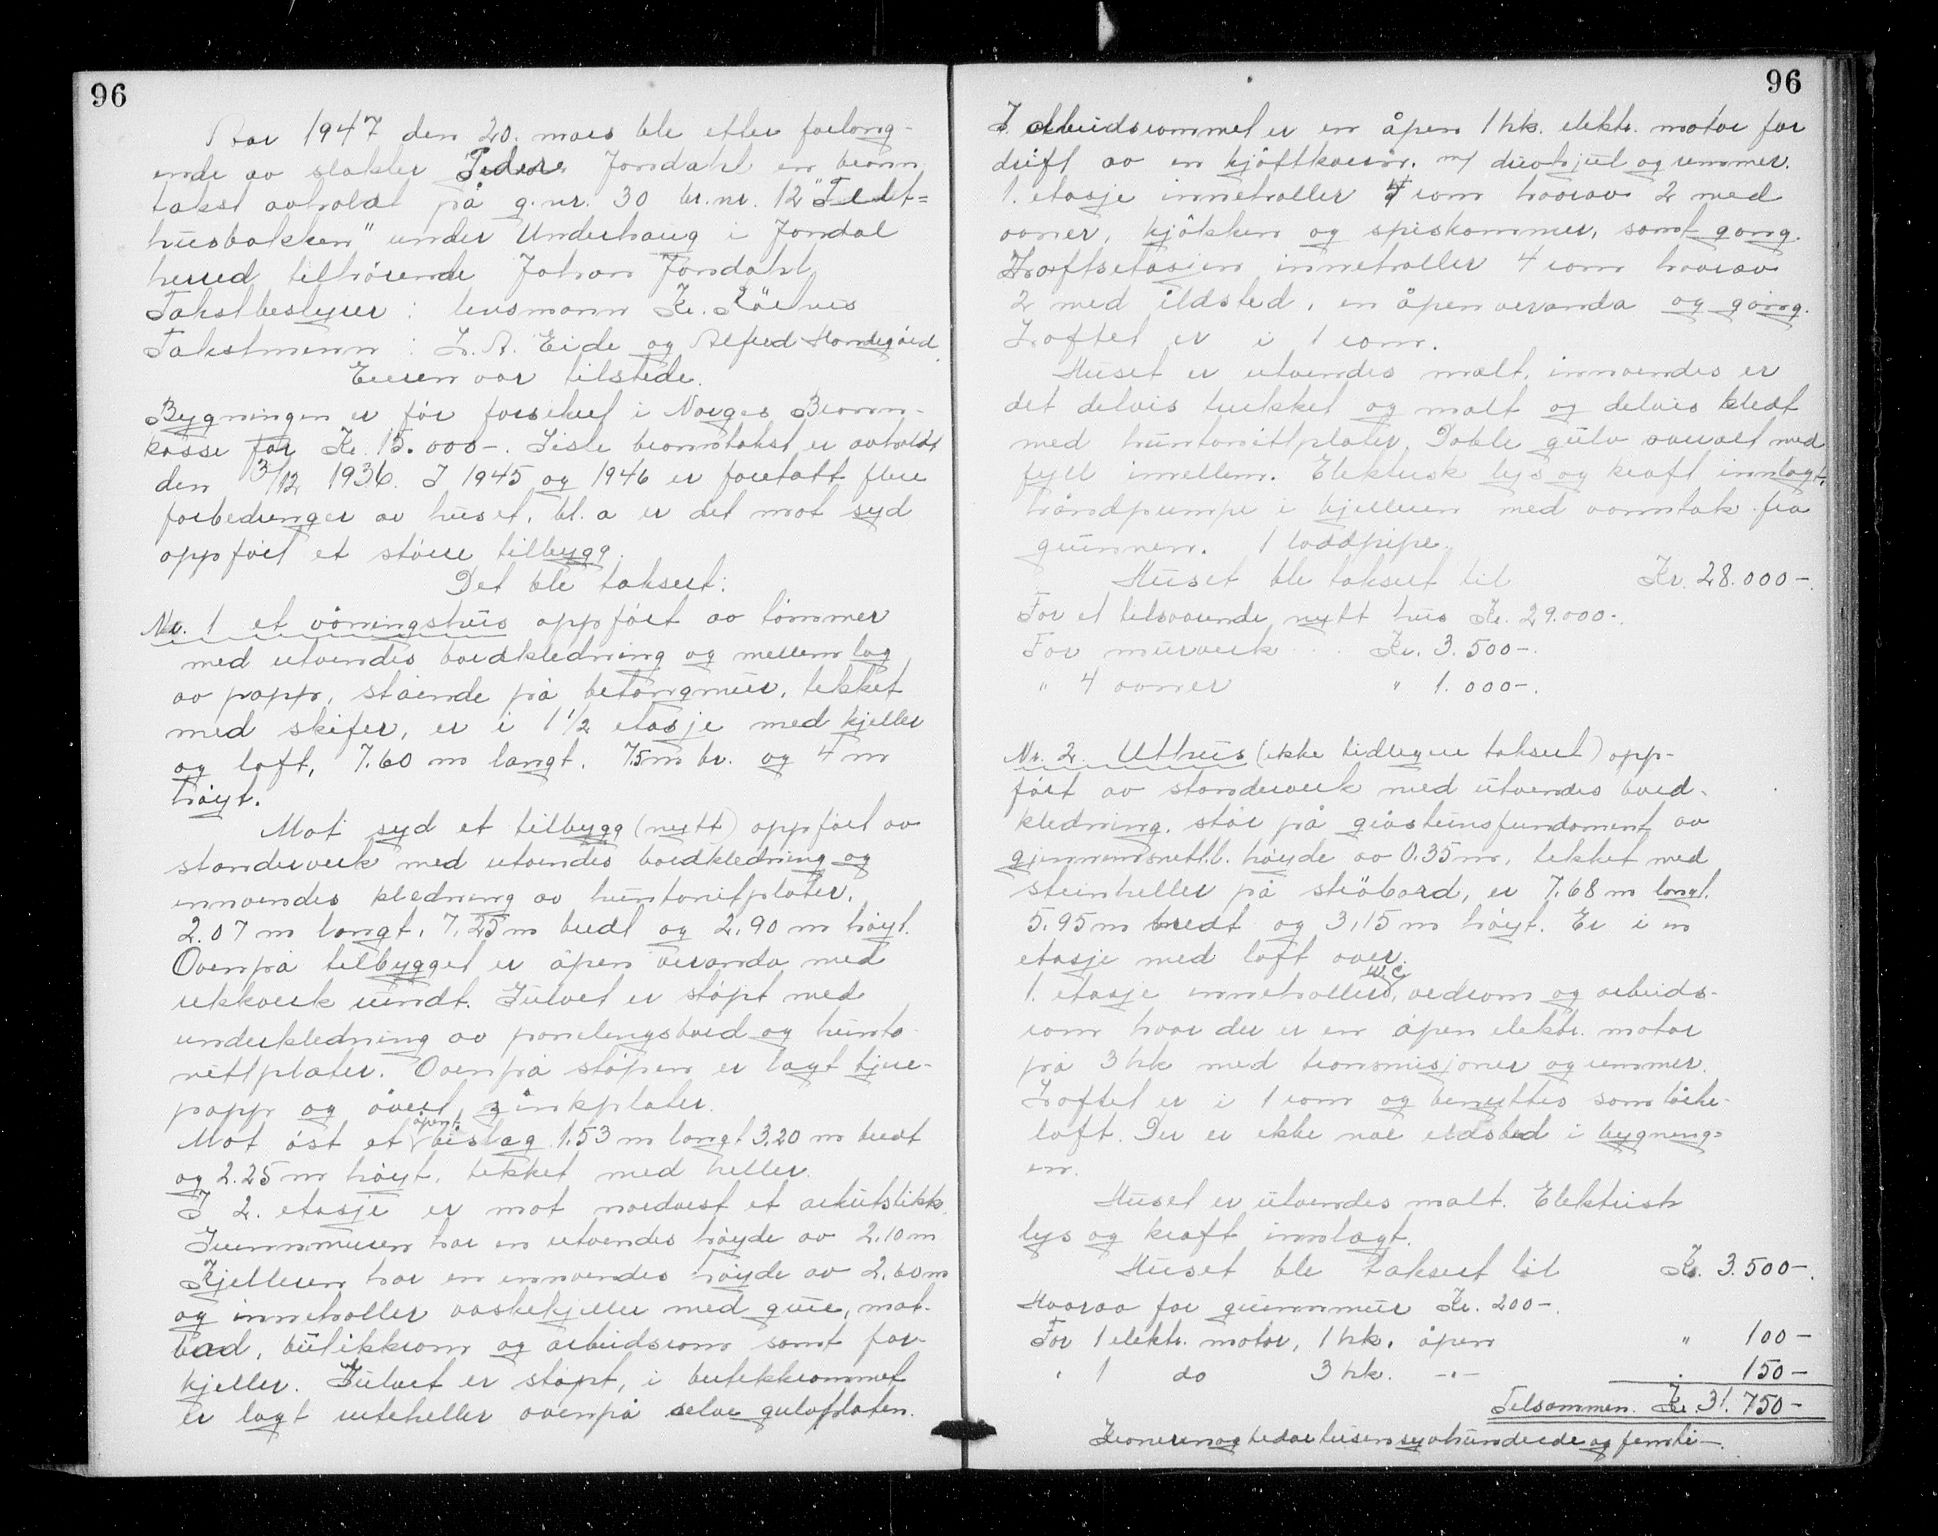 96
Aar 1947 den 20. mars ble etter forlang-
ende av slakter Peder Jondahl en brann
takst avholdt på g.nr. 30 br.nr. 12 "Tedt=
husbakken" under Underhaug i Jondal
herred tilhørende Johan Jondahl
Takstbestyrer : lensmann Kr.
Takstmenn : L. A. Eide og Alfred Handegård.
Eieren var tilstede.
Bygningen er før forsikret i Norges Brann-
kasse for Kr. 15.000-. Siste branntakst er avholdt
den 3/12 1936. I 1945 og 1946 er foretatt flere
forbedringer av huset, bl. a er det mot syd
oppført et større tilbygg.
Det ble taksert:
Nr. 1 et våningshus oppført av tømmer
med utvendes bordkledning og mellemlag
av papp, stående på betongmur, tekket
med skifer, er i 1 1/2 etasje med kjeller
og loft, 7.60 m langt. 7.5 m br. og 4 m
høyt.
Mot syd et tilbygg (nytt) oppført av
standerverk med utvendes bordkledning og
innvendes kledning av huntonitplater.
2.07 m langt. 7.25 m bredt og 2.90 m høyt.
Ovenpå tilbygget er åpen veranda med
rekkverk rundt. Gulvet er støpt med
underkledning av panelingsbord og hunto-
nittplater. Ovenpå støpen er lagt tjære-
papp og øverst zinkplater.
Mot øst et åpent bislag 1.53 m langt 3.20 m bredt
og 2.25 m høyt, tekket med heller.
I 2. etasje er mot nordvest et arkutstikk.
Grunnmuren har en utvendes høyde av 2.10 m
Kjelleren har en innvendes høyde av 2.60 m
og inneholler vaskekjeller med grue, mat-
bod, butikkrom og arbeidsrom samt for-
kjeller. Gulvet er støpt, i butikkrommet
er lagt ruteheller ovenpå selve gulvplaten.
96
I arbeidsrommet er en åpen 1 hk. elektr. motor for
drift av en kjøttkvern. m/ drivhjul og remmer.
1. etasje inneholler 4 rom hvorav 2 med
ovner, kjøkken og spiskammer, samt gang.
Loftsetasjen inneholler 4 rom hvorav
2 med ildsted, en åpen veranda og gang.
Loftet er i 1 rom.
Huset er utvendes malt, innvendes er
det delvis trekket og malt og delvis kledt
med huntonittplater. Doble gulv overalt med
fyll imellem. Elektrisk lys og kraft innlagt,
håndpumpe i kjelleren med vanntak fra
grunnen. 1 loddpipe.
Huset ble taksert til Kr. 28.000-.
For et tilsvarende nytt hus Kr. 29.000-.
For murverk . . . Kr. 3.500-.
" 4 ovner " 1.000-.
Nr. 2. Uthus (ikke tidligere taksert) opp-
ført av standerverk med utvendes bord-
kledning. står på gråsteinsfundament av
gjennemsnittl. høyde av 0.35 m, tekket med
steinheller på strøbord, er 7.68 m langt.
5.95 m bredt og 3,15 m høyt. Er i en
etasje med loft over.
1. etasje inneholler W.C, vedrom og arbeids-
rom hvor der er en åpen elektr. motor
på 3 hk med transmisjoner og remmer.
Loftet er i 1 rom og benyttes som tørke-
loft. Der er ikke noe eldsted i bygning=
en.
Huset er utvendes malt. Elektrisk
lys og kraft innlagt.
Huset ble taksert til Kr. 3.500-.
Hvorav for grunnmur Kr. 200-.
For 1 elektr. motor, 1 hk. åpen " 100-
" 1 do 3 hk. -"- . 150-
Tilsammen. Kr. 31.750-
Kronerenogtredvetusensyvhundrede og femti-.